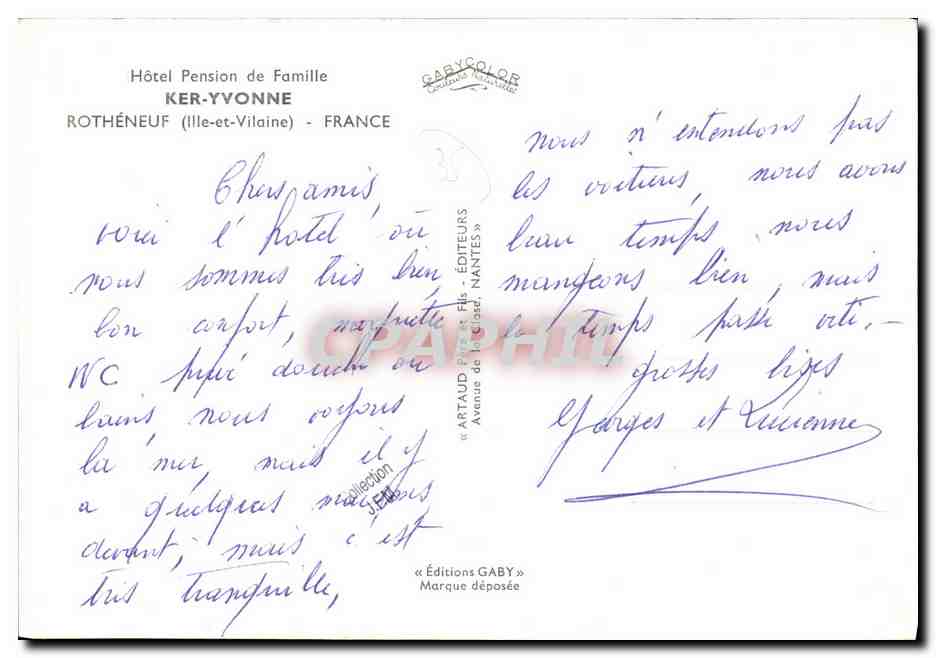 Hôtel Pension de Famille
KER-YVONNE
ROTHÉNEUF (Ille-et-Vilaine) - FRANCE
GABYCOLOR
Couleurs Naturelles
35
Chers amis,
voici l'hotel où
nous sommes très bien,
bon confort, moquette
WC privé douche ou
bains, nous voyons
la mer, mais il y
a quelques maisons
devant, mais c'est
très tranquille,
nous n'entendons pas
les voitures, nous avons
beau temps nous
mangeons bien, mais
le temps passe vite. -
grosses bises
Georges et Lucienne
« ARTAUD Père et Fils - ÉDITEURS
Avenue de la Close, NANTES »
CPAPHIL
Collection
J.EM
« Éditions GABY »
Marque déposée